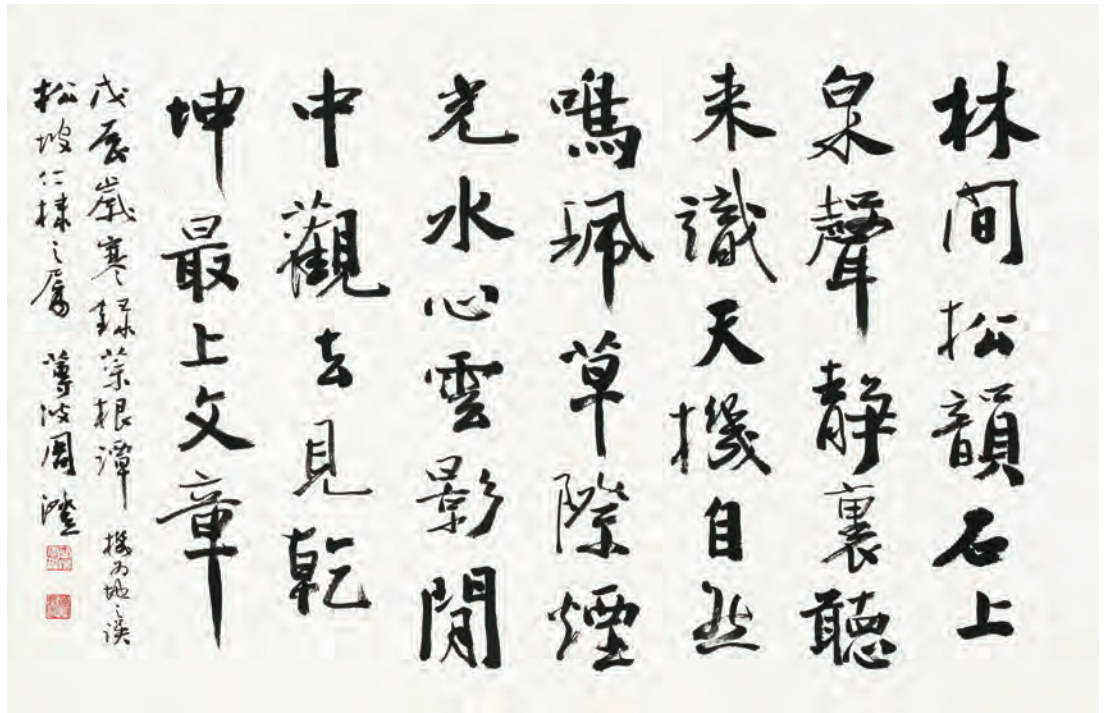 林間松韻石上
泉聲靜裏聽
来識天機自然
鳴珮草際煙
光水心雲影閒
中觀去見乾
坤最上文章
戊辰歲寒録菜根譚 機为地之誤
松坡仁棣之属 蓴波周澄